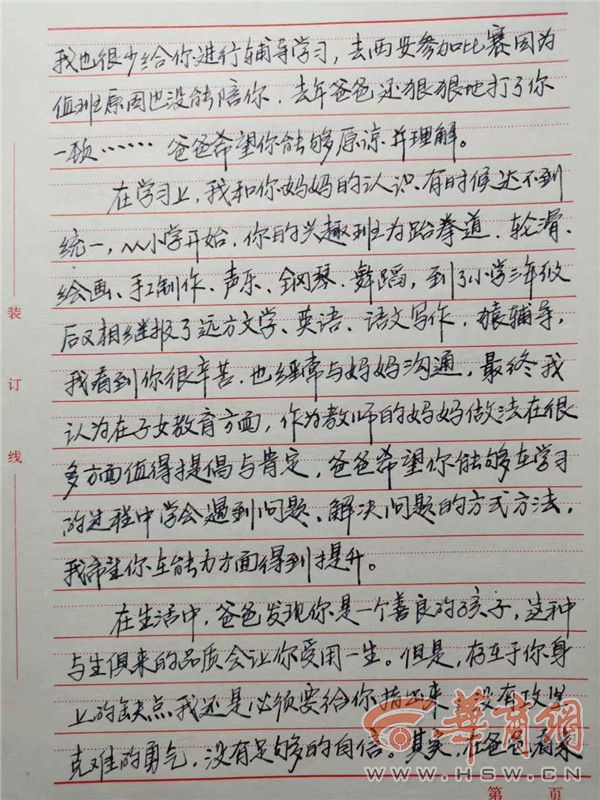 我也很少给你进行辅导学习，去西安参加比赛因为
值班原因也没能陪你，去年爸爸还狠狠地打了你
一顿……爸爸希望你能够原谅并理解。
在学习上，我和你妈妈的认识有时候达不到
统一，从小学开始，你的兴趣班为跆拳道、轮滑、
绘画、手工制作、声乐、钢琴、舞蹈，到了小学三年级
后又相继报了远方文学、英语、语文写作，猿辅导，
我看到你很辛苦，也经常与妈妈沟通，最终我
认为在子女教育方面，作为教师的妈妈做法在很
多方面值得提倡与肯定，爸爸希望你能够在学习
的过程中学会遇到问题、解决问题的方式方法，
我希望你在能力方面得到提升。
在生活中，爸爸发现你是一个善良的孩子，这种
与生俱来的品质会让你受用一生。但是，存在于你身
上的缺点我还是必须要给你指出来，没有攻坚
克难的勇气，没有足够的自信。其实，在爸爸看来
装
订
线
華商網
WWW.HSW.CN
第 页